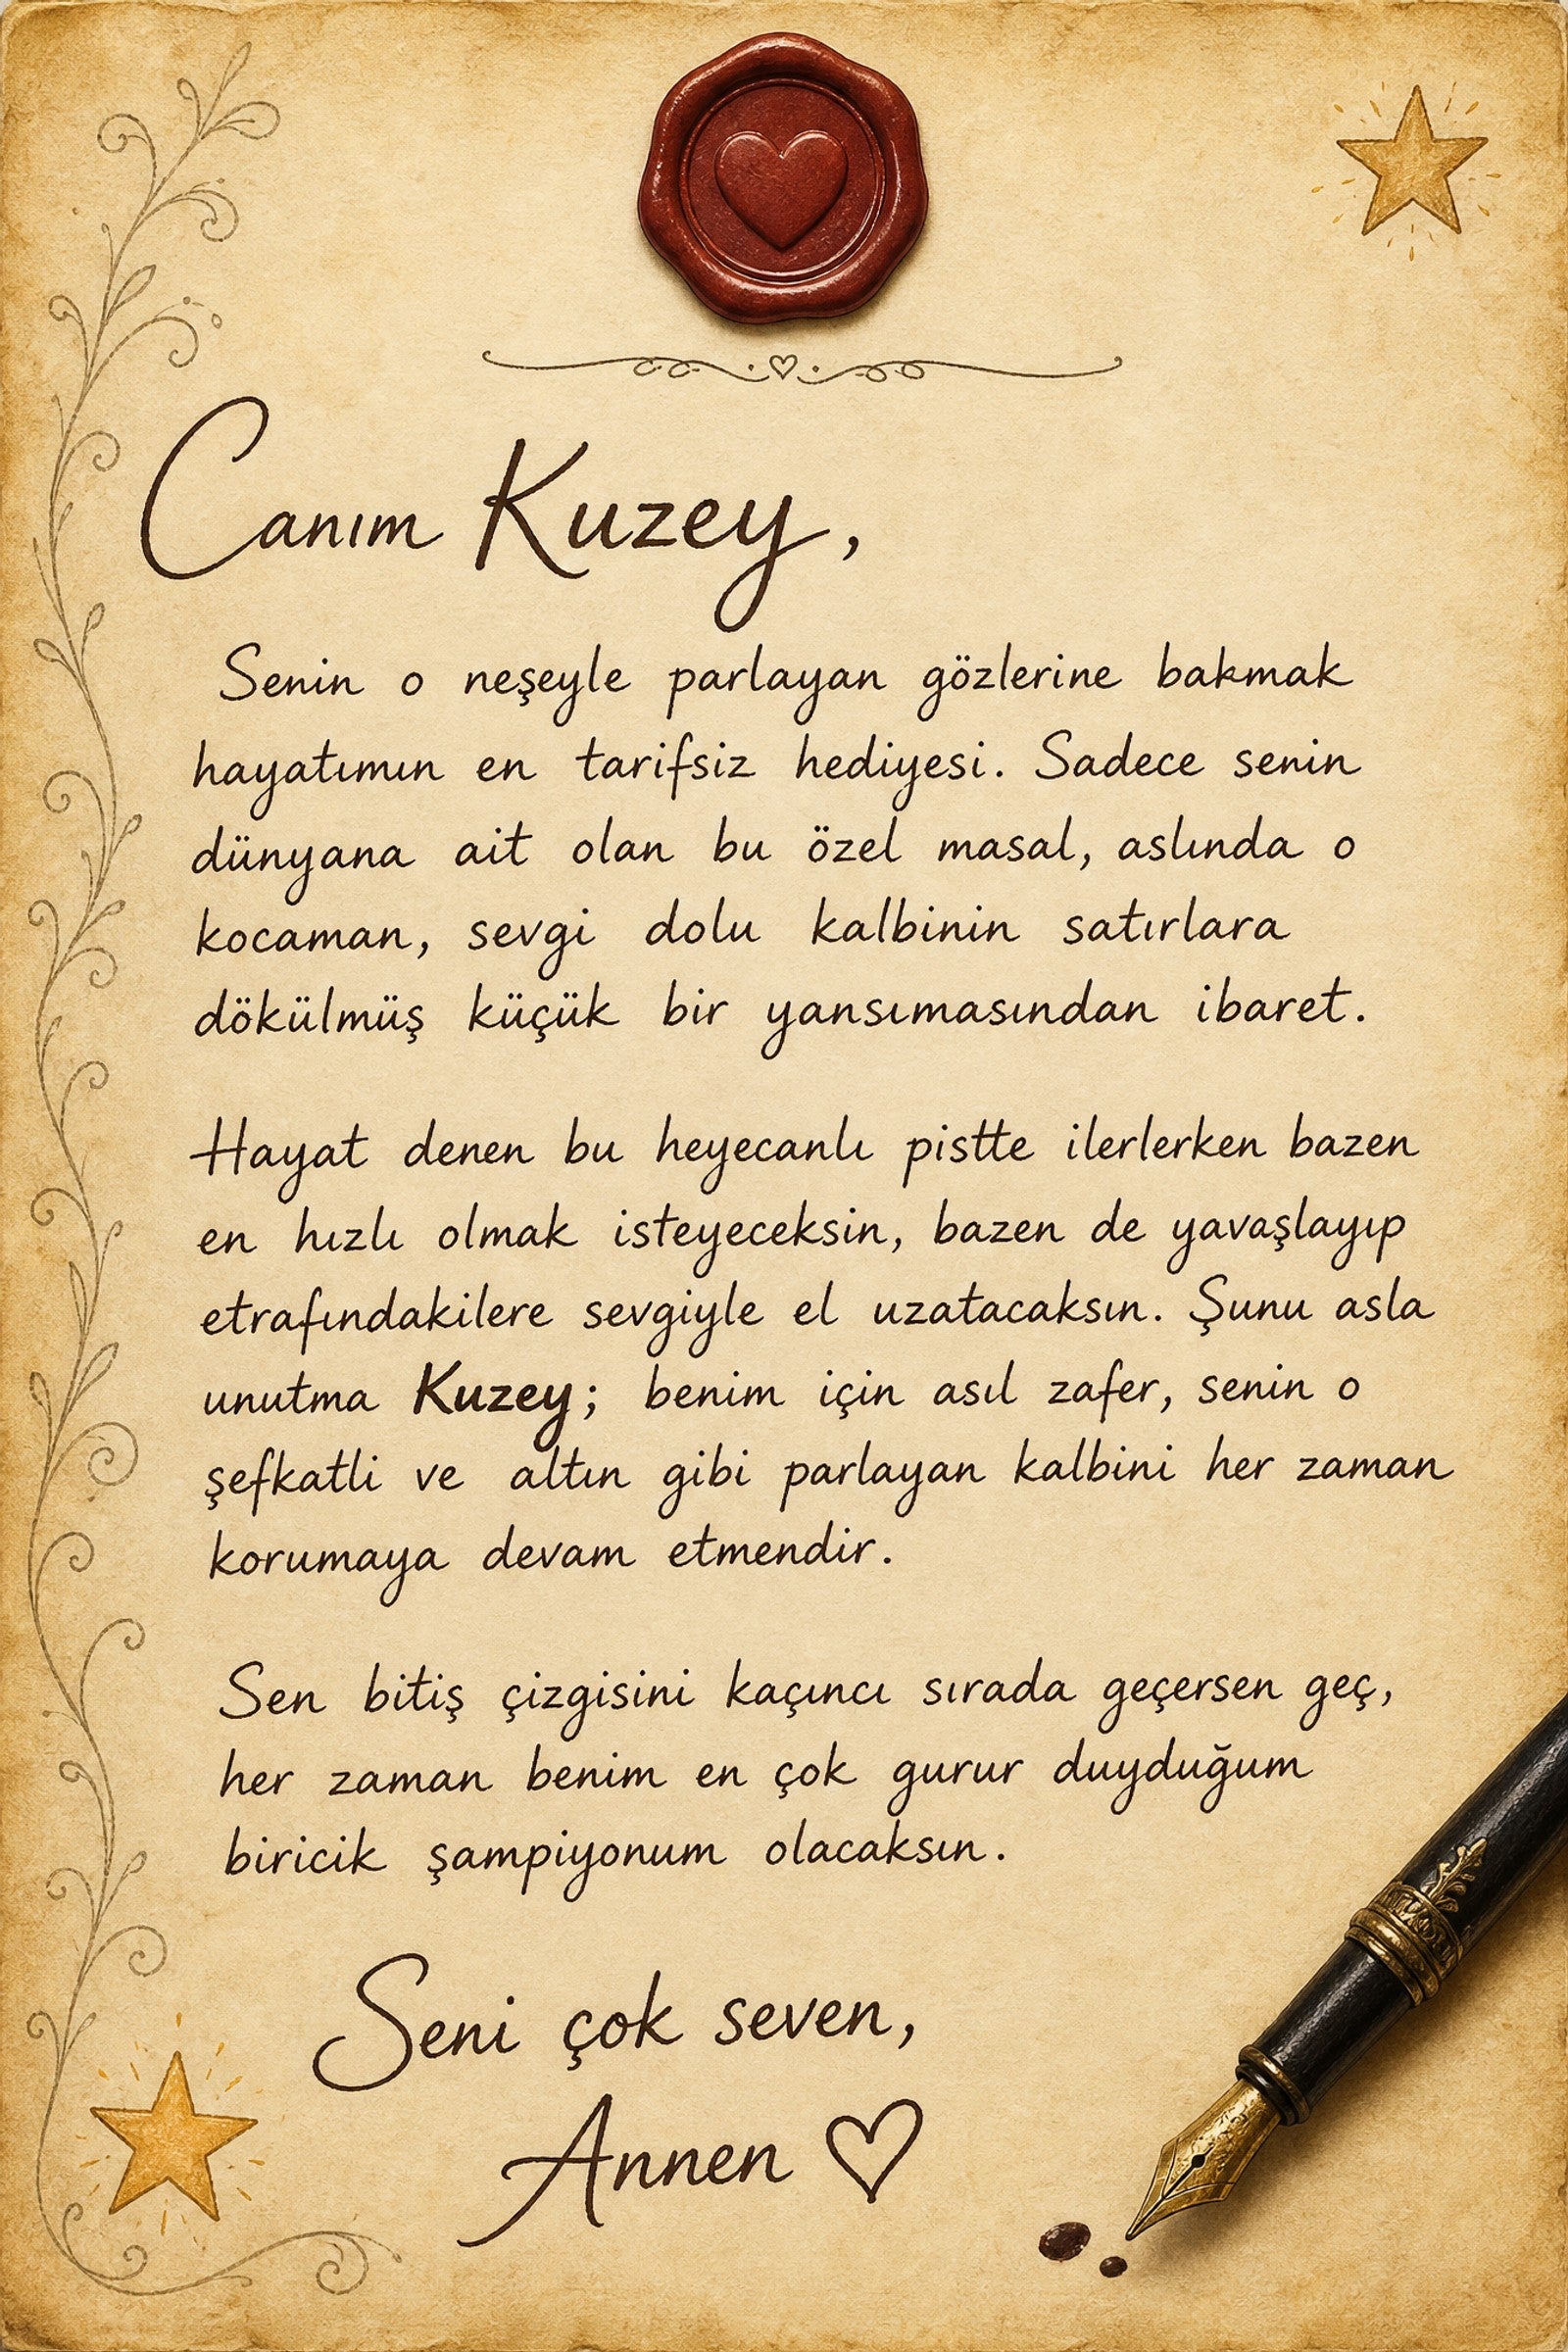 Canım Kuzey,
Senin o neşeyle parlayan gözlerine bakmak
hayatımın en tarifsiz hediyesi. Sadece senin
dünyana ait olan bu özel masal, aslında o
kocaman, sevgi dolu kalbinin satırlara
dökülmüş küçük bir yansımasından ibaret.
Hayat denen bu heyecanlı pistte ilerlerken bazen
en hızlı olmak isteyeceksin, bazen de yavaşlayıp
etrafındakilere sevgiyle el uzatacaksın. Şunu asla
unutma Kuzey; benim için asıl zafer, senin o
şefkatli ve altın gibi parlayan kalbini her zaman
korumaya devam etmendir.
Sen bitiş çizgisini kaçıncı sırada geçersen geç,
her zaman benim en çok gurur duyduğum
biricik şampiyonum olacaksın.
Seni çok seven,
Annen ♡